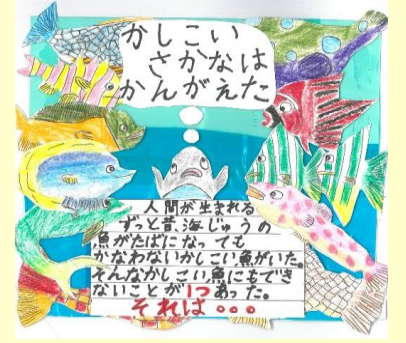 かしこい
さかなは
かんがえた
人間が生まれる
ずっと昔、海じゅうの
魚がたばになっても
かなわないかしこい魚がいた。
そんなかしこい魚にもでき
ないことが1つあった。
それは。。。